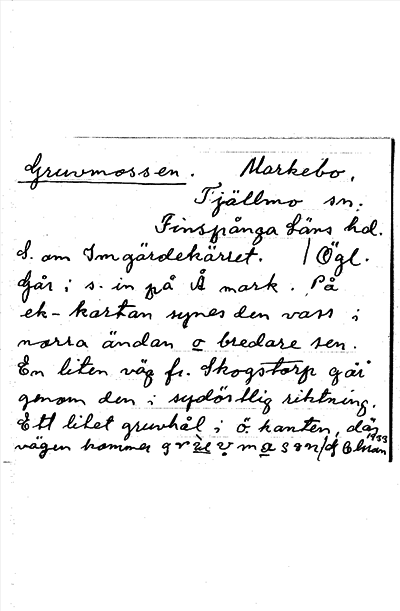 Gruvmossen. Markebo,
Tjällmo sn.
Finspånga läns hd.
S. om Imgärdekärret. / Ögl.
Går i s. in på Å mark. På
ek-kartan synes den vass i
norra ändan o bredare sen.
En liten väg fr. Skogstorp går
genom den i sydöstlig riktning.
Ett litet gruvhål i ö. kanten, där
vägen kommer
1933